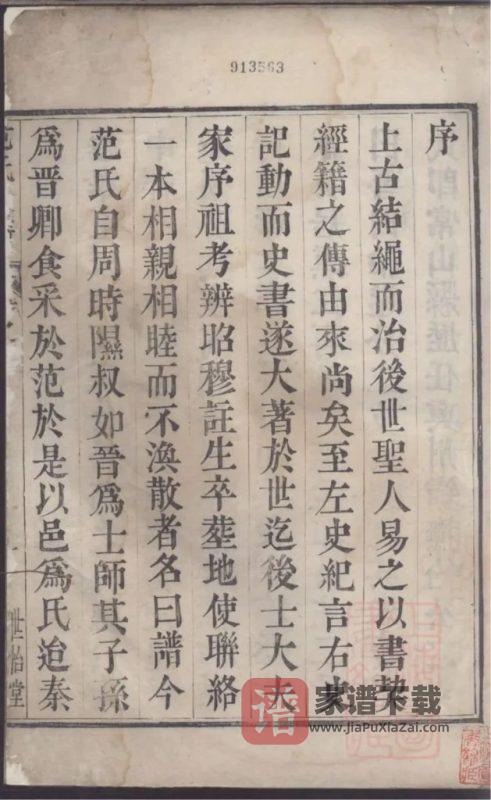 913563
序
上古結繩而治後世聖人易之以書契
經籍之傳由來尚矣至左史紀言右史
記動而史書遂大著於世迄後士大夫
家序祖考辨昭穆註生卒塟地使聯絡
一本相親相睦而不渙散者名曰譜今
范氏自周時隰叔如晉爲士師其子孫
爲晋卿食采於范於是以邑爲氏迨秦
世怡堂
谱
家谱下载
www.jiaPuXiazai.com